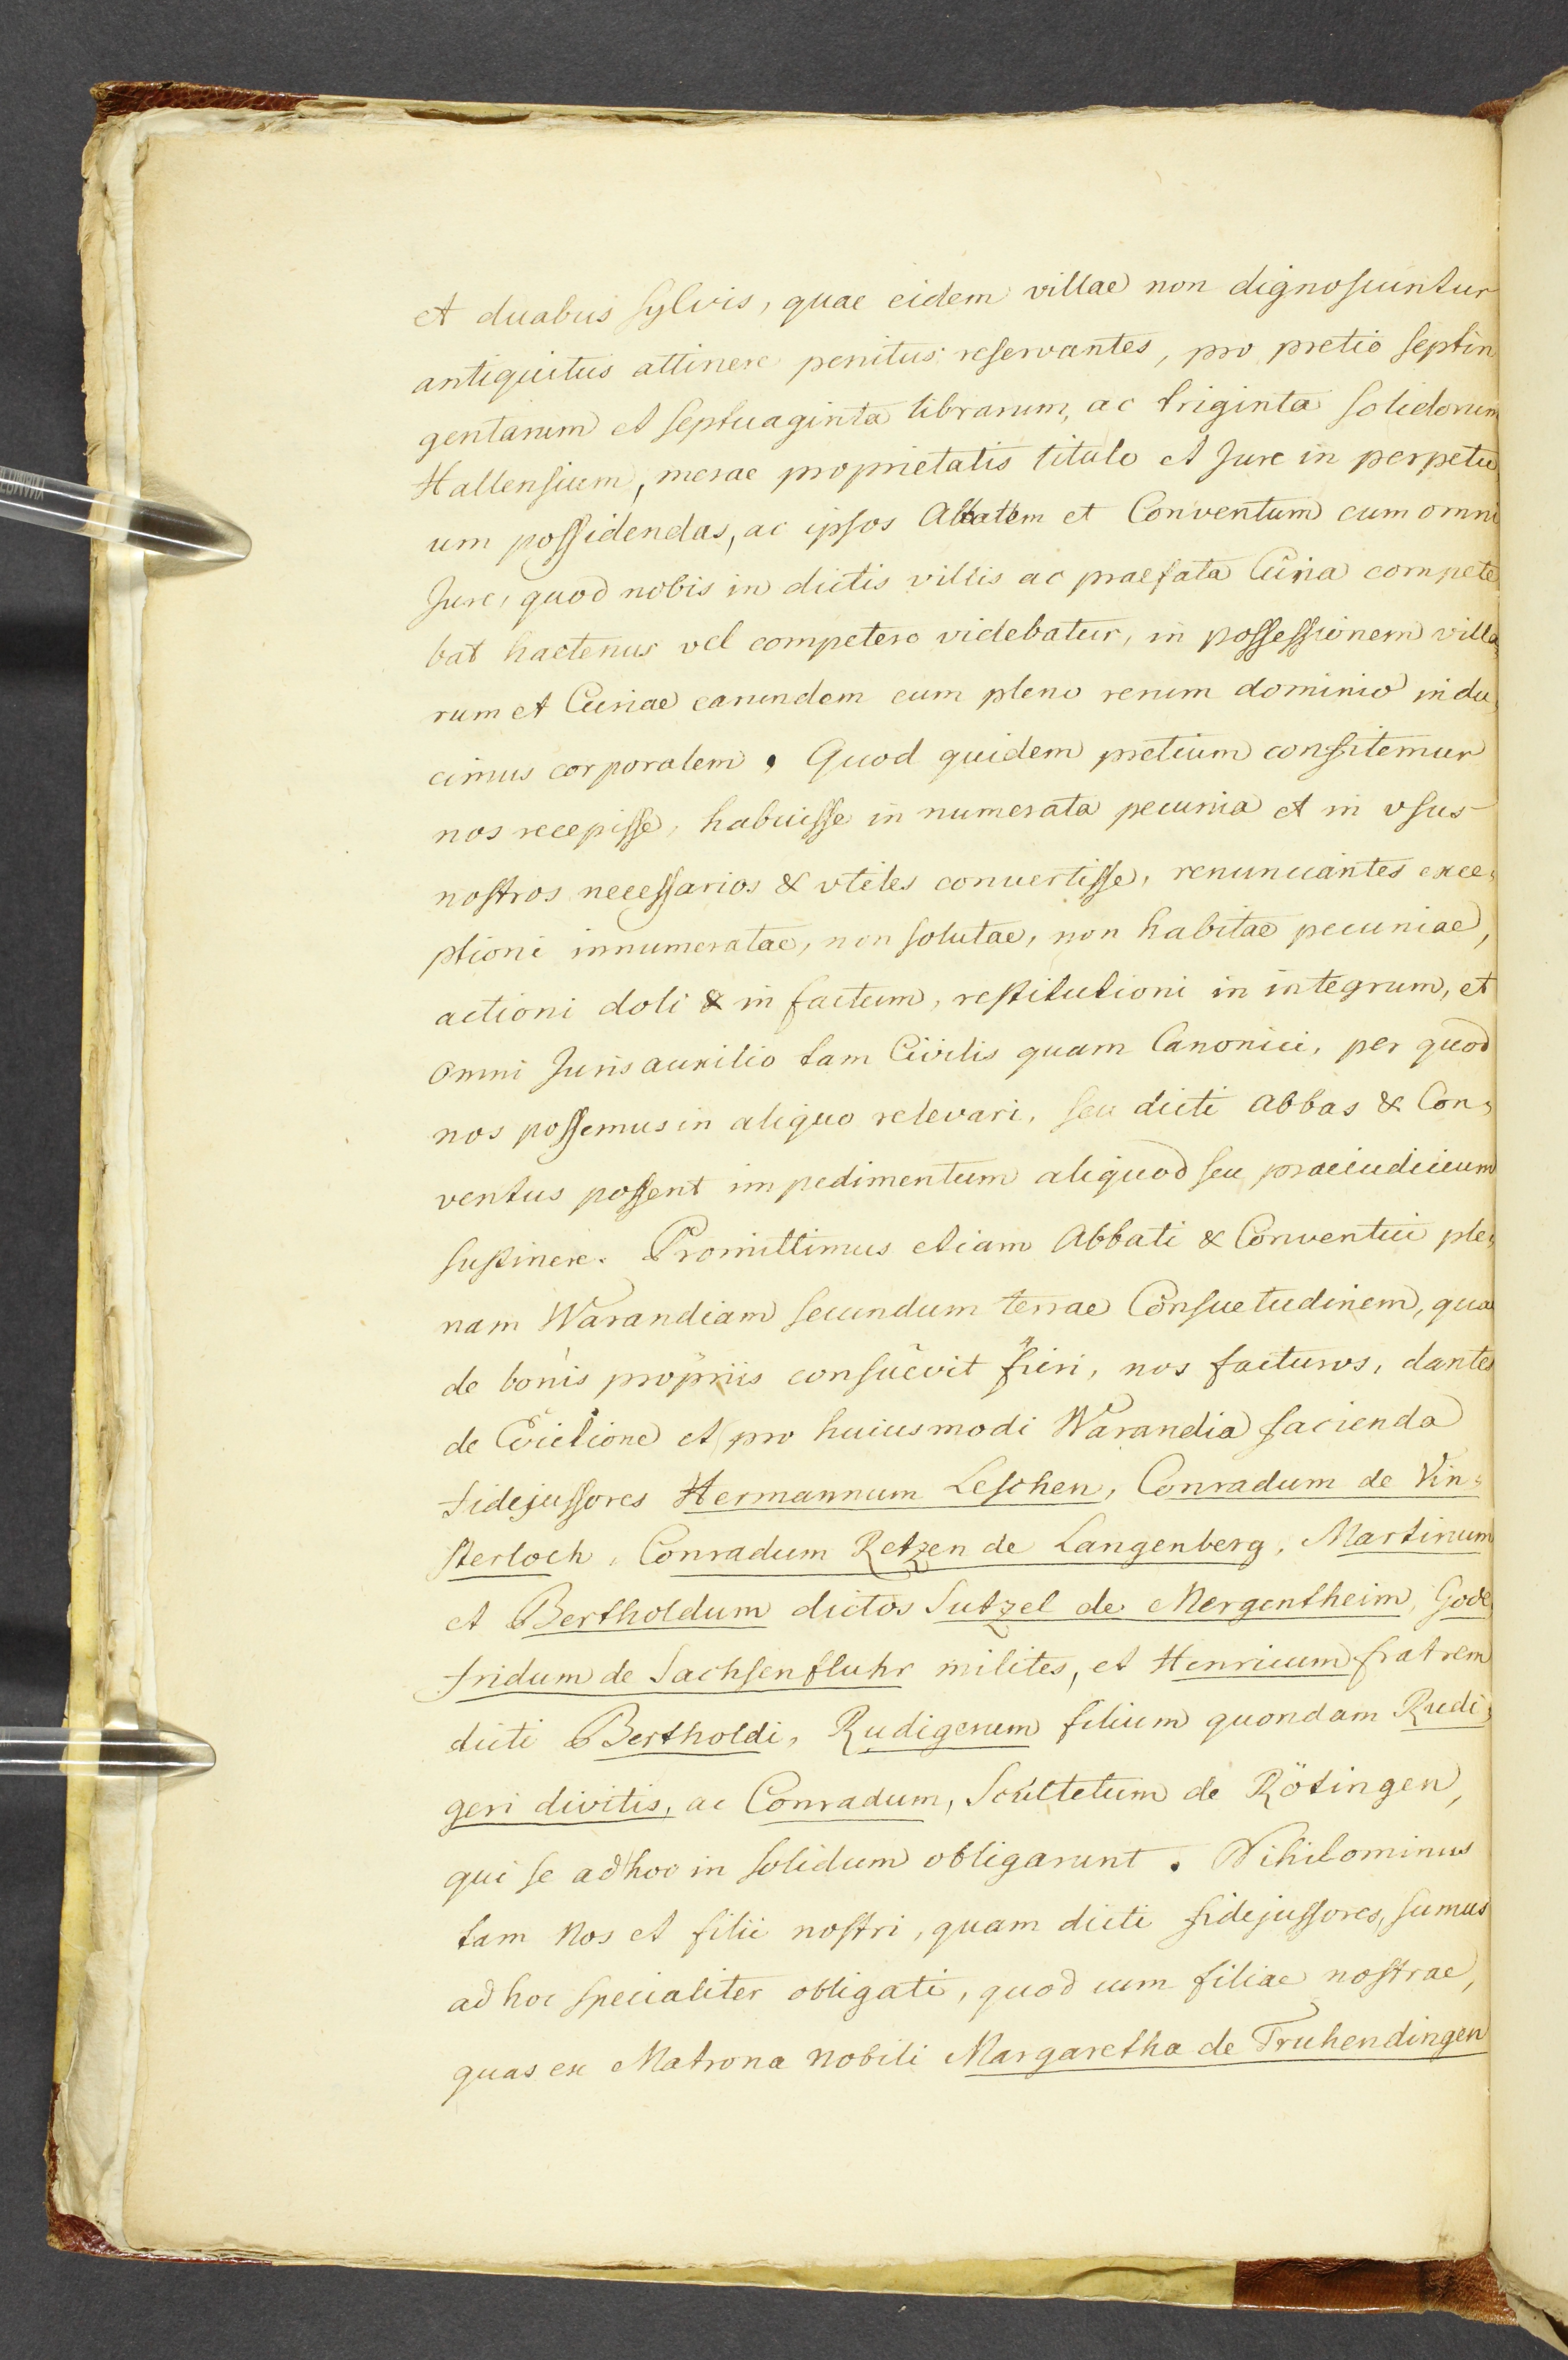 et duabus sylvis, quae eidem villae non dignoscuntur
antiquitus attinere penitus reservantes, pro pretio septin
gentarum et septuaginta librarum, ac triginta solidorum
Hallensium, merae proprietatis titulo et Jure in perpetu
um possidendas, ac ipsos Abbatem et Conventum cum omni
Jure, quod nobis in dictis villis ac praefata Curia compete
bat hactenus vel competere videbatur, in possessionem villa,
rum et Curiae earundem cum pleno rerum dominio indu,
cimus corporalem. Quod quidem pretium confitemur
nos recepisse, habuisse in numerata pecunia et in vsus
nostros necessarios & vtiles convertisse, renunciantes exce,
ptioni innumeratae, non solutae, non habitae pecuniae,
actioni doli & in factum, restitutioni in integrum, et
omni Juris auxilio tam Civilis quam Canonici, per quod
nos possemus in aliquo relevari, seu dicti Abbas & Con,
ventus possent impedimentum aliquod seu praeiudicium
sustinere. Promittimus etiam Abbati & Conventui ple,
nam Warandiam secundum terrae Consuetudinem, qua
de bonis propriis consuevit fieri, nos facturos, dantes
de Evictione et pro huiusmodi Warandia facienda
fidejussores Hermannum Leschen, Conradum de Vin,
sterloch, Conradum Retzen de Langenberg, Martinum
et Bertholdum dictos Sutzel de Mergentheim, Gode
fridum de Sachsenfluhr milites, et Henricum fratrem
dicti Bertholdi, Rudigerum filium quondam Rudi,
geri divitis, ac Conradum, Scultetum de Rötingen,
qui se ad hoc in solidum obligarunt. Nihilominus
tam Nos et filii nostri, quam dicti fidejussores, sumus
ad hoc specialiter obligati, quod cum filiae nostrae,
quas ex Matrona Nobili Margaretha de Truhendingen